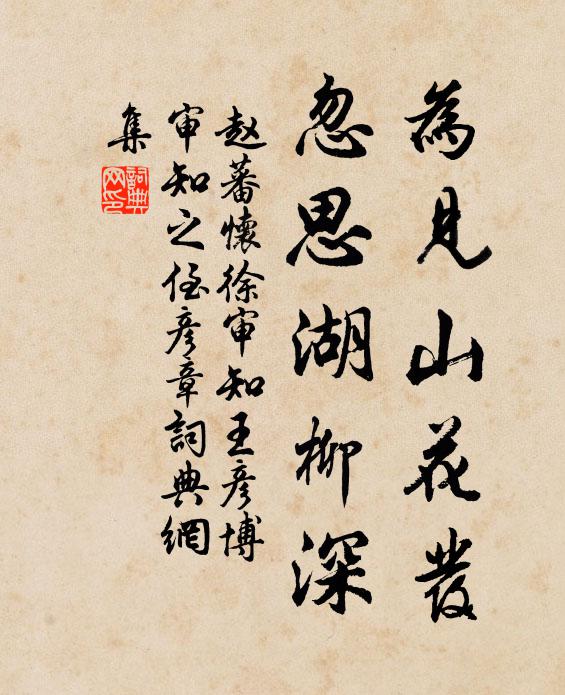 為見山花發
忽思湖柳深
赵蕃懷徐审知王彦博
审知之侄彦章詞典網
集
詞典網印